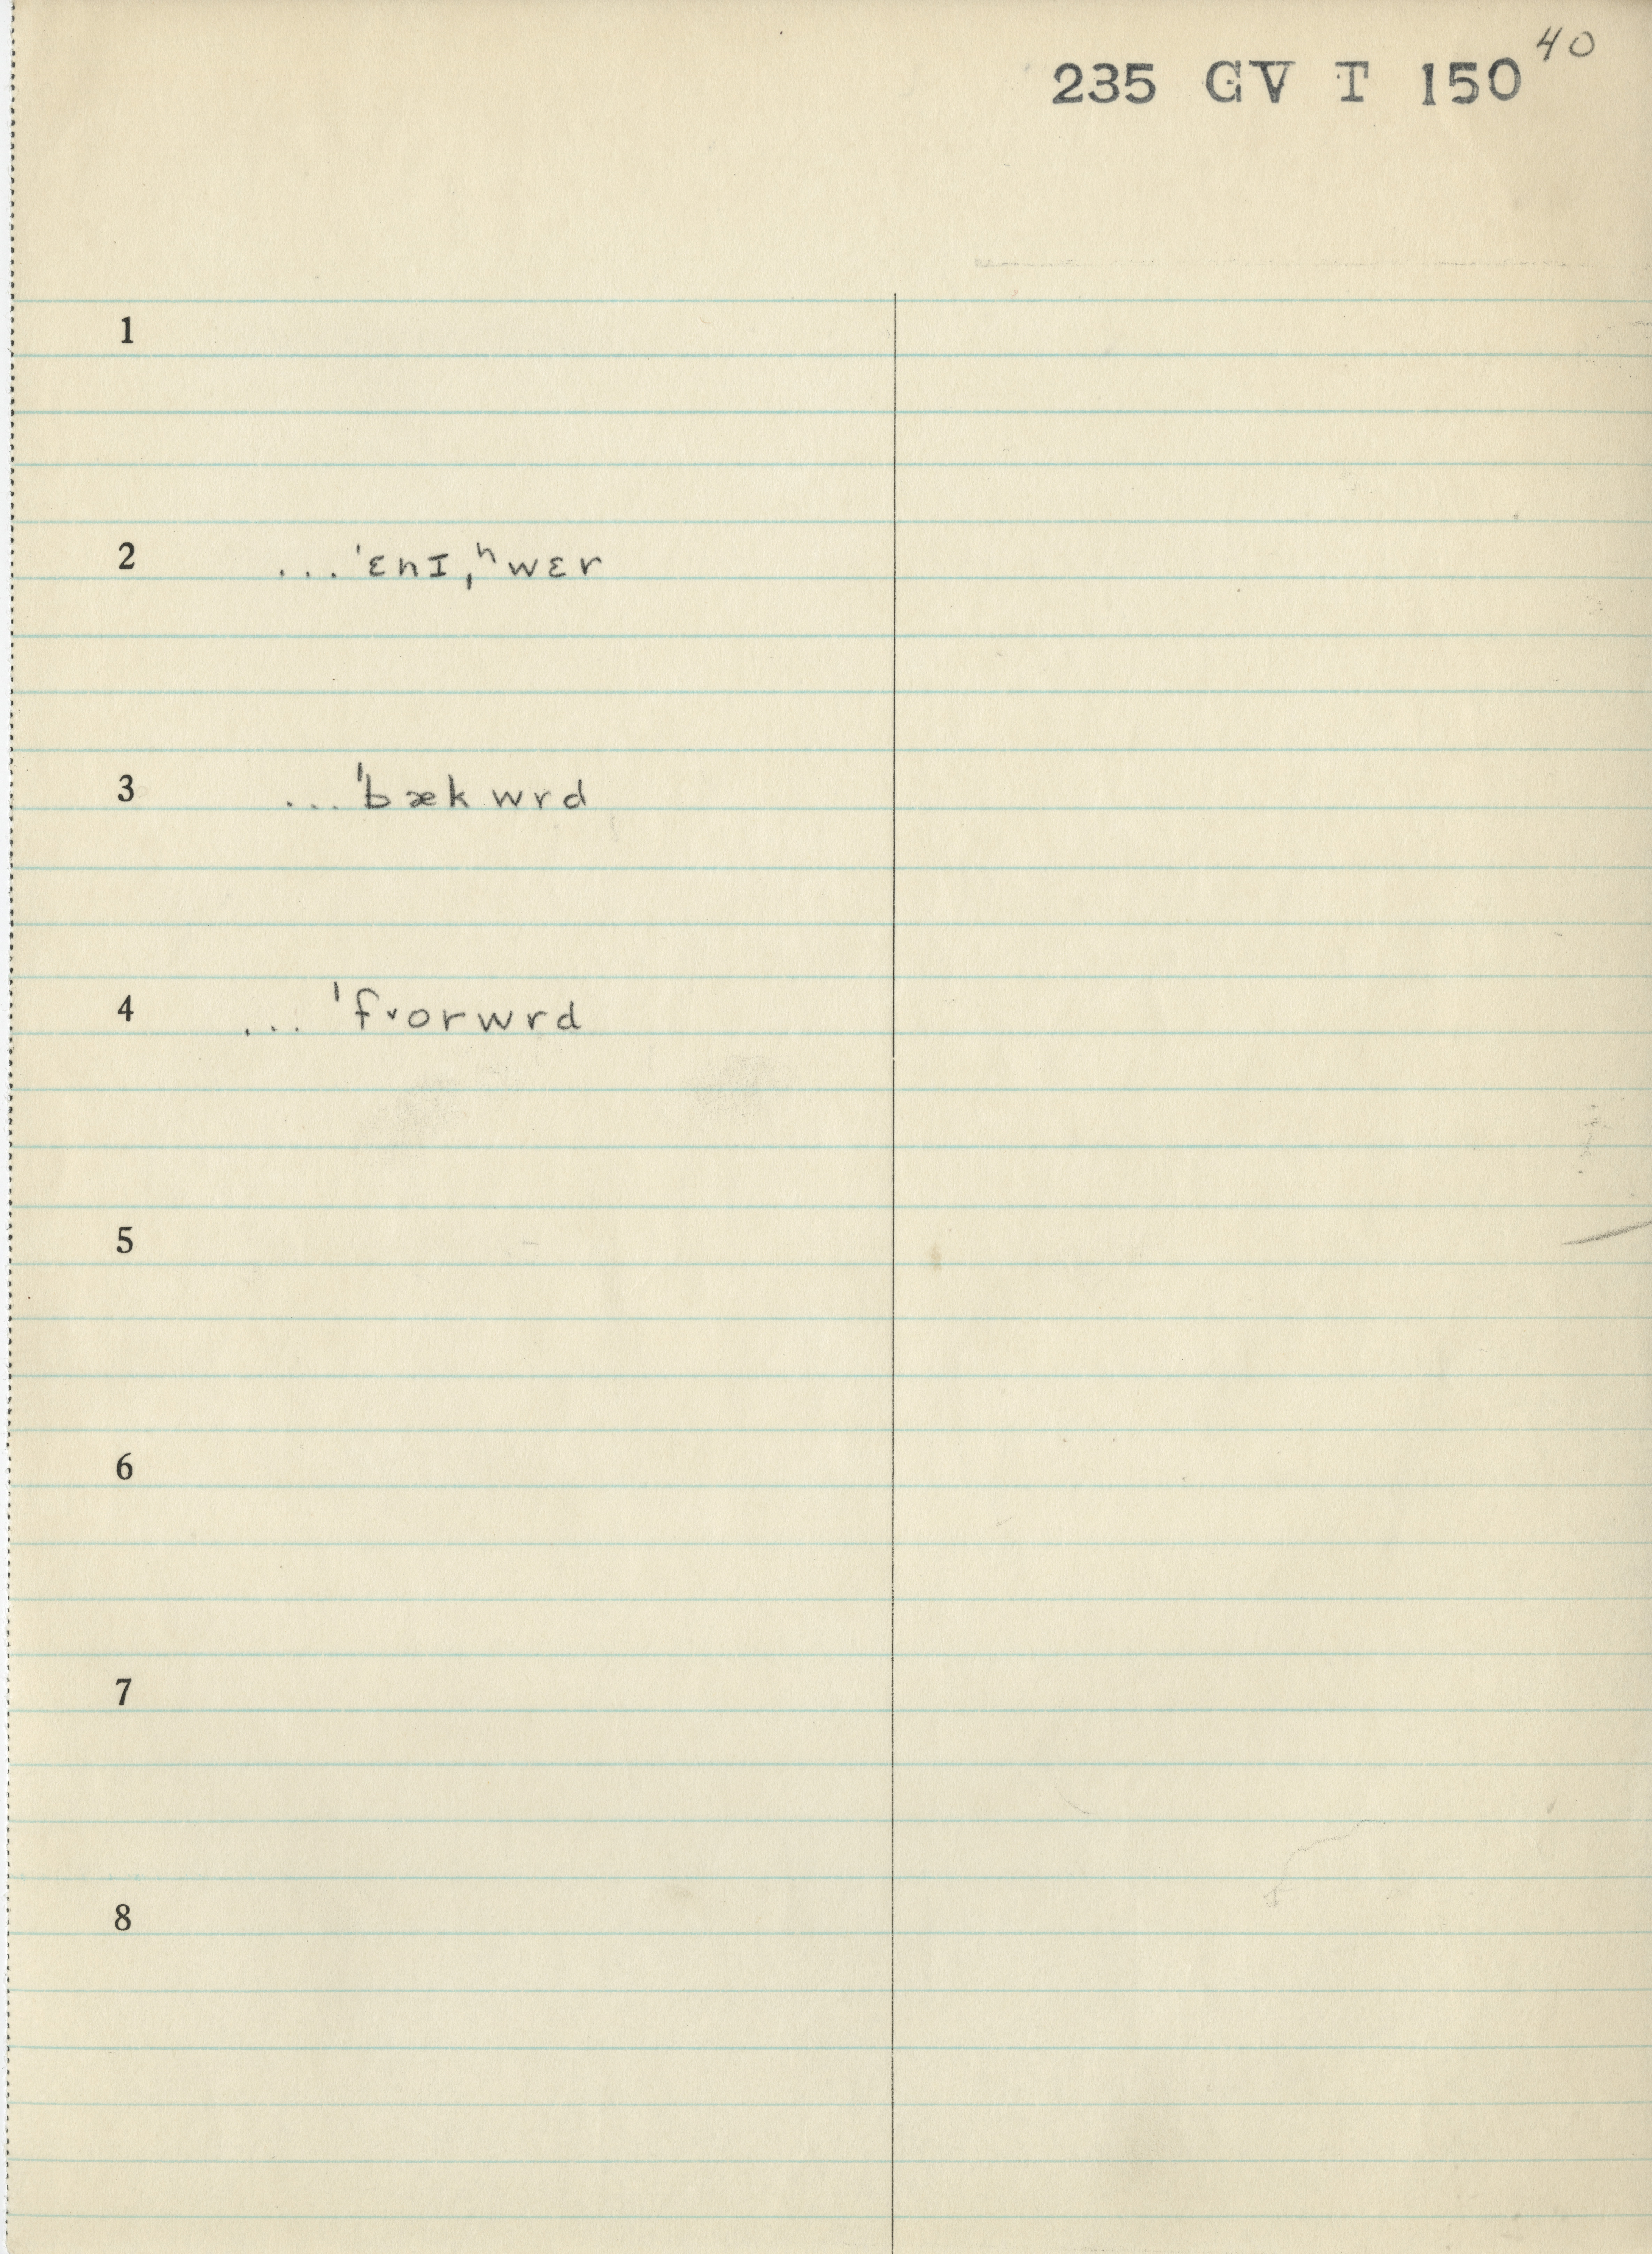 40
235 GV T 150
1
2 ... ˈɛnɪˌʰwɛr
3 ... ˈbækwrd
4 ... ˈf˅orwrd
5
6
7
8